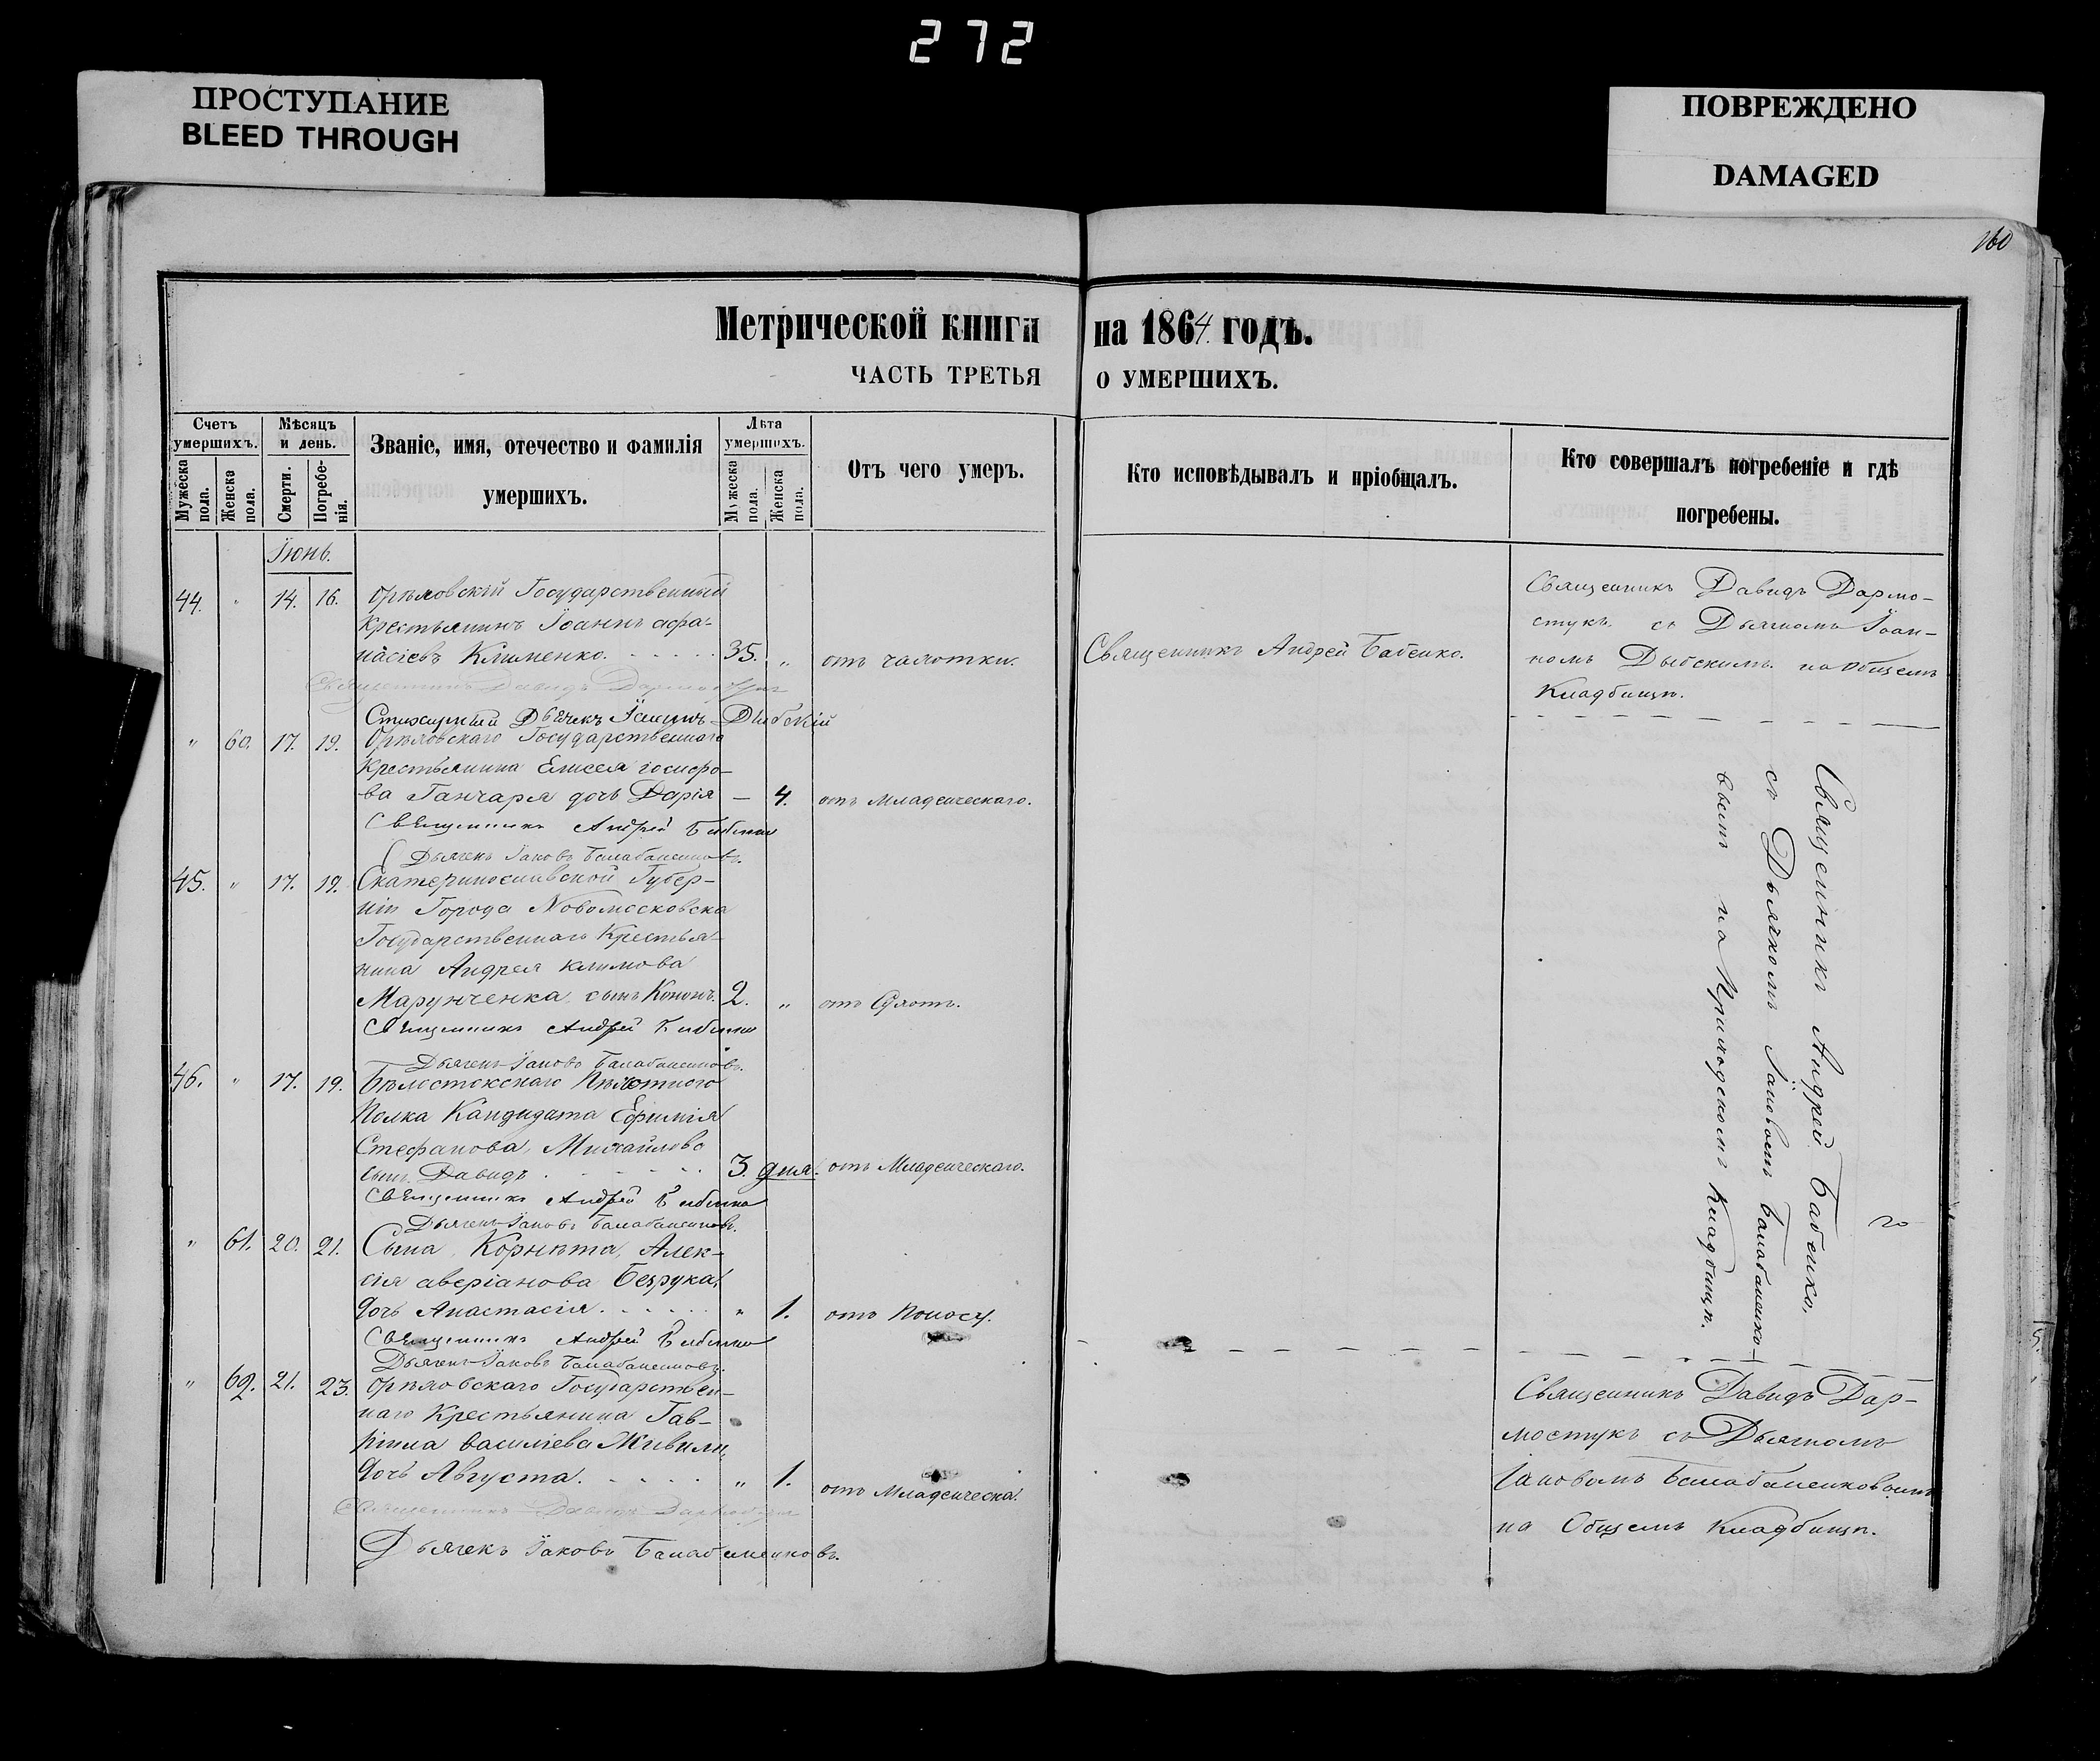 272
ПРОСТУПАНИЕ
BLEED THROUGH
ПОВРЕЖДЕНО
DAMAGED
160
Метрической книги на 1864. годъ.
ЧАСТЬ ТРЕТЬЯ О УМЕРШИХЪ.
Счетъ умершихъ.
Мужеска пола.
Женска пола.
Мѣсяцъ и день.
Смерти.
Погребенія.
Званіе, имя, отечество и фамилія умершихъ.
Лѣта умершихъ.
Мужеска пола.
Женска пола.
Отъ чего умеръ.
Кто исповѣдывалъ и пріобщалъ.
Кто совершалъ погребеніе и гдѣ погребены.
Іюнь.
44. " 14. 16. Орѣховскій Государственный
Крестьянинъ Іоаннъ афа-
насіевъ Клименко. 35. " отъ чахотки.
Священникъ Андрей Бабенко.
Священникъ Давидъ Дармо-
стукъ съ Дьячкомъ Іоан-
номъ Дыбскимъ на Общемъ
Кладбищѣ.
Священникъ Давидъ Дармостукъ
Стихарный Дьячекъ Іоаннъ Дыбскій
" 60. 17. 19. Орѣховскаго Государственнаго
Крестьянина Елисея іосифо-
ва Ганчаря дочь Дарія — 4. отъ Младенческаго.
Священникъ Андрей Бабенко
Дьячекъ Іаковъ Балабаненковъ.
45. " 17. 19. Екатеринославской Губер-
ніи Города Новомосковска
Государственнаго Крестья-
нина Андрея климова
Марунченка, сынъ Кононъ. 2. "
Священникъ Андрей Бабенко
Дьячекъ Іаковъ Балабаненковъ.
46. " 17. 19. Бѣлостокскаго Пѣхотного
Полка Кандидата Ефимія
Стефанова, Михайлова
сынъ Давидъ 3. дня. отъ Младенческаго.
Священникъ Андрей Бабенко
Дьячекъ Іаковъ Балабаненковъ.
" 61. 20. 21. Сына Корнета, Алек-
сія аверіанова Безрука,
дочь Анастасія. " 1. отъ Поносу.
Священникъ Андрей Бабенко
Дьячекъ Іаковъ Балабаненковъ.
Священникъ Андрей Бабенко,
съ Дьячкомъ Іаковомъ Балабаненко-
вымъ на Приходскомъ Кладбищѣ.
" 62. 21. 23. Орѣховскаго Государствен-
наго Крестьянина Гав-
ріила василіева Живили,
дочь Августа. " 1. отъ Младенческа.
Священникъ Давидъ Дармостукъ
Дьячекъ Іаковъ Балабаненковъ.
Священникъ Давидъ Дар-
мостукъ съ Дьячкомъ
Іаковомъ Балабаненковымъ
на Общемъ Кладбищѣ.